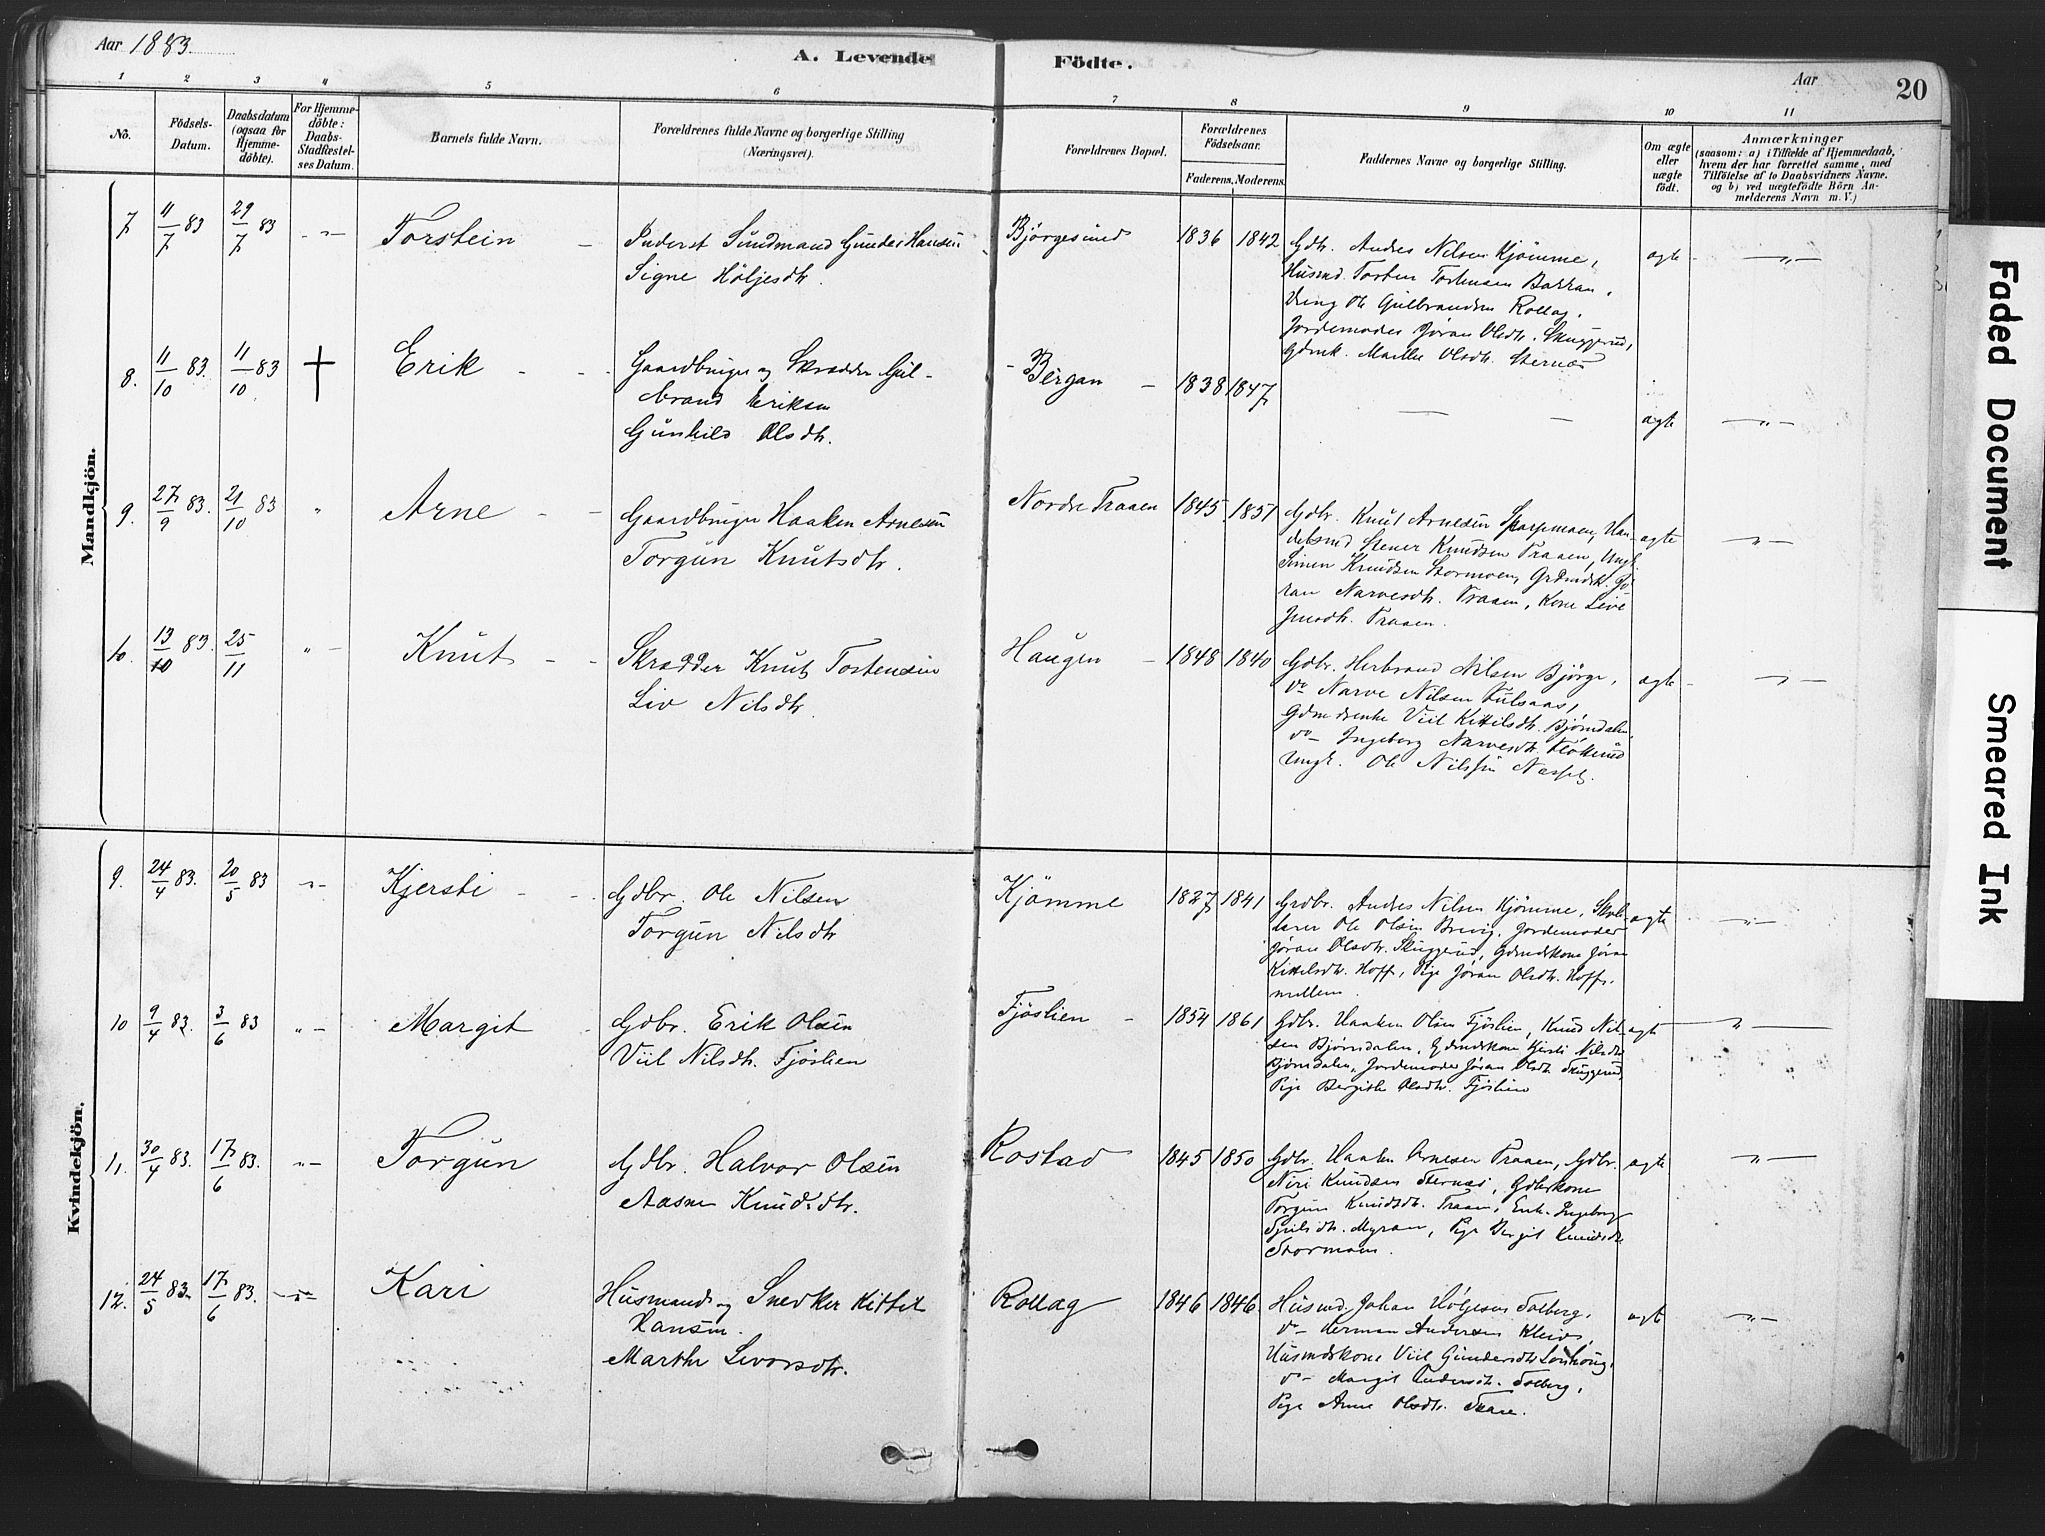 Aar 1883.
A. Levende Födte.
Aar
20
1 2 3 4 5 6 7 8 9 10 11
No.
Födsels-
Datum.
Daabsdatum
(ogsaa for
Hjemme-
döbte).
For Hjemme-
döbte:
Daabs-
Stadfæstel-
ses Datum.
Barnets fulde Navn.
Forældrenes fulde Navne og borgerlige Stilling
(Næringsvei).
Forældrenes Bopæl.
Forældrenes
Födselsaar.
Faderens. Moderens.
Faddernes Navne og borgerlige Stilling.
Om ægte
eller
uægte
födt.
Anmærkninger
(saasom: a) i Tilfælde af Hjemmedaab,
hvem der har forrettet samme, med
Tilföielse af to Daabsvidners Navne.
og b) ved uægtefödte Börn An-
melderens Navn m. V.)
Mandkjön.
7 11/7 83 29/7 83 Torstein
Inderst Sundmand Gunder Hansen
Signe Höljesdtr.
Björgesund 1836 1842
Gdbr. Andres Nilsen Kjömme,
Husmd. Torsten Torstensen Bakkan,
Ole Gulbrandsen Rollag,
Jordemoder Jöran Olsdtr. Skuggerud,
Marthe Olsdtr. Sternæs
ægte
8. 11/10 83. 11/10 83 Erik
Gaardbruger og Skrædder Gul-
brand Eriksen
Gunhild Olsdtr.
Bergan 1838 1847
ægte
9. 27/9 83. 21/10 83 Arne
Gaardbruger Haaken Arnesen
Torgun Knutsdtr.
Nordre Traaen 1845 1851
Gdbr. Knut Arnesen Skarpmoen, Han-
delsmd. Stener Knudsen Traaen, Ungk.
Simen Knudsen Stormoen, Grdmdsk. Jö-
ran Narvesdtr. Traaen, Kone Live
Traaen.
ægte
10. 13/10 83. 25/11 Knut
Skrædder Knut Torstensen
Liv Nilsdtr.
Haugen 1848 1840
Gdbr. Herbrand Nilsen Björge,
do Narve Nilsen Tulsaas,
Gdmdsenke Viil Kittilsdtr. Björndalen,
do Ingeborg Narvesdtr.
Ungk. Ole Nilsen
ægte
Kvindekjön.
9. 24/4 83. 20/5 83 Kjersti
Gdbr. Ole Nilsen
Torgun Nilsdtr
Kjömme 1827 1841
Grdbr. Andres Nilsen Kjömme, Skole-
lærer Ole Olsen Brevig, Jordemoder
Jöran Olsdtr. Skuggerud, Gdmdskone Jöran
Kittilsdtr. Hoff, Pige Jöran Olsdtr. Hoff
mellem.
ægte
10 9/4 83. 3/6 83 Margit
Gdbr. Erik Olsen
Viil Nilsdtr. Fjöslien
Fjöslien 1854 1861
Gdbr. Haaken Olsen Fjöslien, Knud Nil-
sen Björndalen, Gdmdskone Kjersti Nilsdtr
Björndalen, Jordemoder Jöran Olsdtr. Skuggerud,
Pige Bergithe Olsdtr. Fjöslien
ægte
11. 30/4 83. 17/6 83. Torgun
Gdbr. Halvor Olsen
Aasne Knudsdtr.
Rostad 1845 1850
Gdbr. Haaken Arnesen Traaen, Gdbr.
Niri Knudsen Sternæs, Gdbrkone
Torgun Knudsdtr. Traaen, Enk. Ingeborg
Myran, Pige Bergit Knudsdtr
Stormoen.
ægte
12. 24/5 83. 17/6 83. Kari
Husmand og Snedker Kittil
Hansen.
Marthe Sevorsdtr.
Rollag 1846 1846
Husmd. Johan Höljesen Solberg,
do Herman Andersen Kleivi,
Husmdskone Viil Gundersdtr
do Margit Andersdtr. Solberg,
Pige Anne Olsdtr.
ægte
Faded Document
Smeared Ink